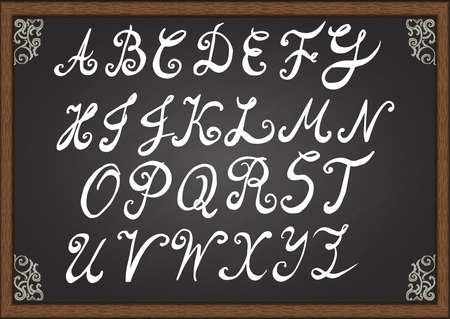 ABCDEFG
HIJKLMN
OPQRST
UVWXYZ